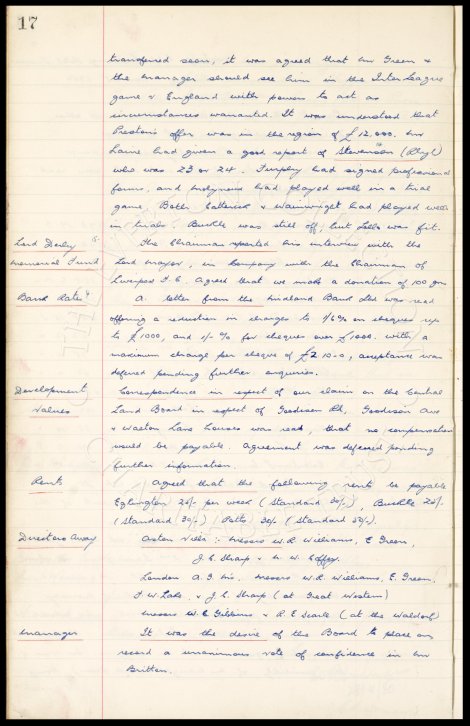 17
transferred soon, it was agreed that Mr Green &
the Manager should see him in the Inter League
game v England with powers to act as
circumstances warranted. It was understood that
Preston's offer was in the region of £12,000. Mr
had given a good report of Stevenson (Rhyl)
who was 23 or 24. Murphy had signed professional
forms, and had played well in a trial
game. Both Catterick & Wainwright had played well
in trials. Buckle was still off, but Lello was fit.
Lord Derby's
Memorial Fund
The Chairman reported his interview with the
Lord Mayor, in company with the Chairman of
Liverpool F.C. Agreed that we make a donation of 100 gns.
Bank Rates
A letter from the Midland Bank Ltd was read
offering a reduction in charges to 1/6% on cheques up
to £1000, and 1/- % for cheques over £1000. with a
maximum charge per cheque of £2-10-0, acceptance was
deferred pending further enquiries.
Development
Values
Correspondence in respect of our claim on the Central
Land Board in respect of Goodison Rd, Goodison Ave
& Walton Lane houses was read, that no compensation
would be payable. Agreement was deferred pending
further information.
Rents
Agreed that the following rents be payable
Eglington 25/- per week (Standard 30/-), Buckle 25/-
(Standard 30/-) Potts 30/- (Standard 50/-).
Directors Away
Aston Villa :- Messrs W.R. Williams, E Green,
J.C. Sharp & N. W. Coffey.
London A.G. Ms. Messrs W.R. Williams, E. Green,
F W Lake, & J.C. Sharp (at Great Western)
Messrs W.C. Gibbins & R E Searle (at the Waldorf)
Manager
It was the desire of the Board to place on
record a unanimous vote of confidence in Mr
Britton.